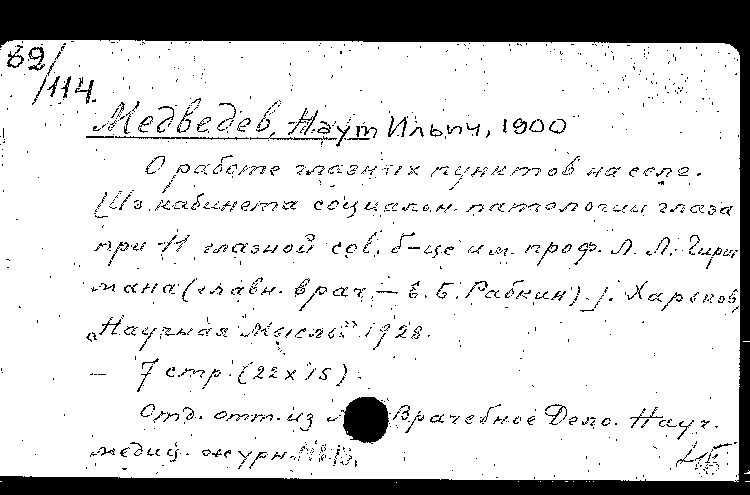 82/
/114.
Медведев, Наум Ильич, 1900
О работе глазных пунктов на селе.
[Из кабинета социальн. патологии глаза
при 11 глазной сов. б-це им. проф. Л. Л. Гирш
мана (главн. врач – Е. Б. Рабкин).]. Харьков,
„Научная Мысль" 1928.
– 7 стр. (22х15).
Отд. отт. из Врачебное Дело. Науч.
медиц. журн.